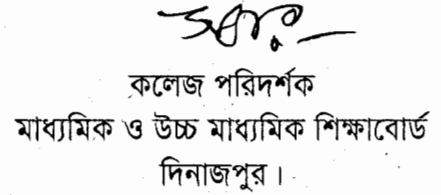 কলেজ পরিদর্শক
মাধ্যমিক ও উচ্চ মাধ্যমিক শিক্ষাবোর্ড
দিনাজপুর।